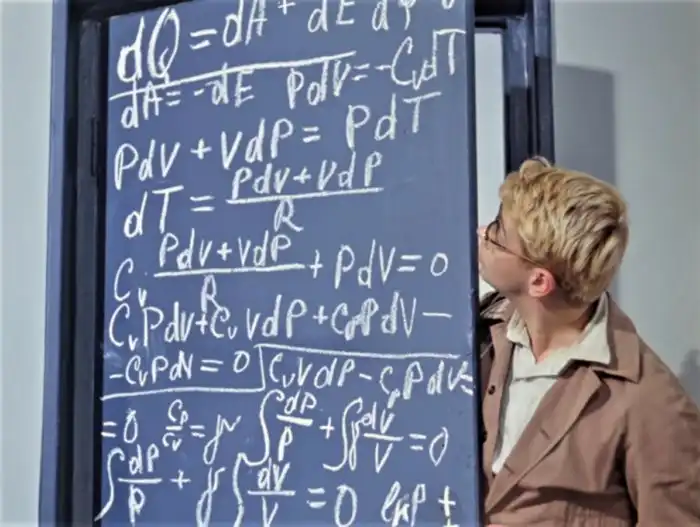 dQ = dA + dE
dA = -dE PdV = -CvdT
PdV + VdP = PdT
dT = PdV + VdP / R
Cv · PdV + VdP / R + PdV = 0
CvPdV + CvVdP + CpPdV -
- CvPdV = 0 CvVdP - CpPdV =
= 0 Cp/Cv = γ ∫ dP/P + ∫γ dV/V = 0
∫ dP/P + γ ∫ dV/V = 0 lnP +